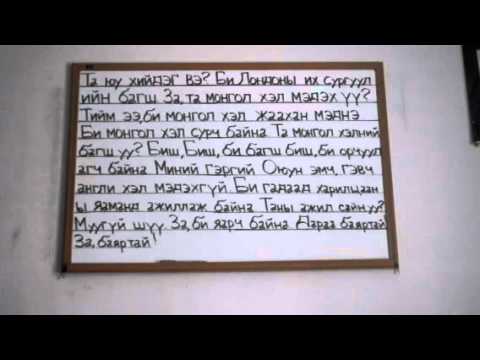 Та юу хийдэг вэ? Би Лондоны их сургуул
ийн багш За, та монгол хэл мэдэх үү?
Тийм ээ, би монгол хэл жаахан мэднэ
Би монгол хэл сурч байна Та монгол хэлний
багш уу? Биш, Биш, би багш биш, би орчуул
агч байна Миний гэргий Оюун эмч, гэвч
англи хэл мэдэхгүй. Би гадаад харилцаан
ы яаманд ажиллаж байна Таны ажил сайн уу?
Муугүй шүү. За, би яарч байна Дараа баяртай
За, баяртай